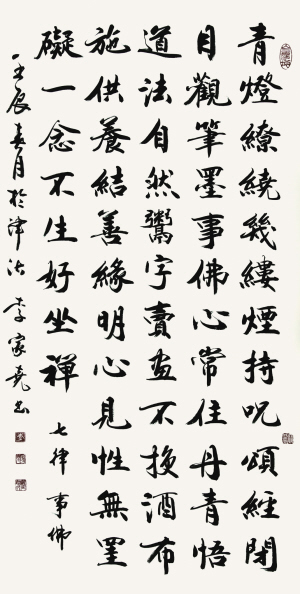 青燈繚繞幾縷煙持呪頌經閉
目觀筆墨事佛心常住丹青悟
道法自然鬻字賣画不換酒布
施供養結善緣明心見性無罣
礙一念不生好坐禪 七律 事佛
壬辰春月於津沽 李家尧书